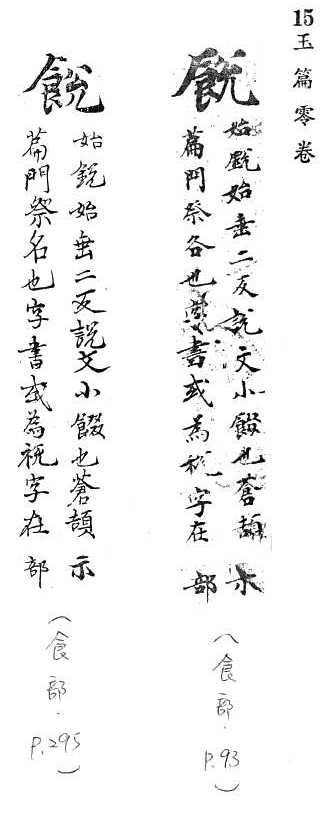 15玉篇零卷
䬽
始銳始垂二反說文小餟也蒼頡 示
篇門祭名也字書或為祱字在 部
(食部.P.93)
䬽
始銳始垂二反說文小餟也蒼頡 示
篇門祭名也字書或為祱字在 部
(食部.P.295)